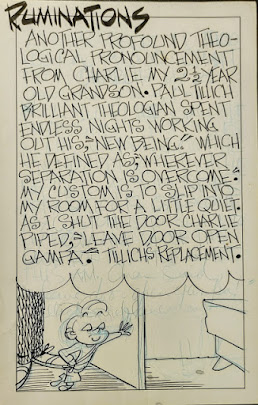 RUMINATIONS
ANOTHER PROFOUND THEO-
LOGICAL PRONOUNCEMENT
FROM CHARLIE MY 2½ YEAR
OLD GRANDSON. PAUL TILLICH
BRILLIANT THEOLOGIAN SPENT
ENDLESS NIGHTS WORKING
OUT HIS, "NEW BEING." WHICH
HE DEFINED AS, "WHEREVER
SEPARATION IS OVERCOME."
MY CUSTOM IS TO SLIP INTO
MY ROOM FOR A LITTLE QUIET.
AS I SHUT THE DOOR CHARLIE
PIPED, "LEAVE DOOR OPEN
GAMPA." TILLICHS REPLACEMENT.